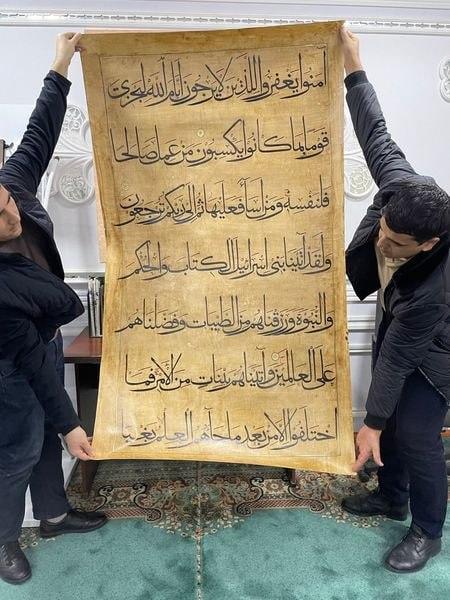 آمنوا يغفروا للذين لا يرجون أيام الله ليجزى
قوما بما كانوا يكسبون من عمل صالحا
فلنفسه ومن أسا فعليها ثم إلى ربكم ترجعون
ولقد آتينا بنى إسرائيل الكتاب والحكم
والنبوة ورزقناهم من الطيبات وفضلناهم
على العالمين وآتيناهم بينات من الأمر فما
اختلفوا إلا من بعد ما جاءهم العلم بغيا